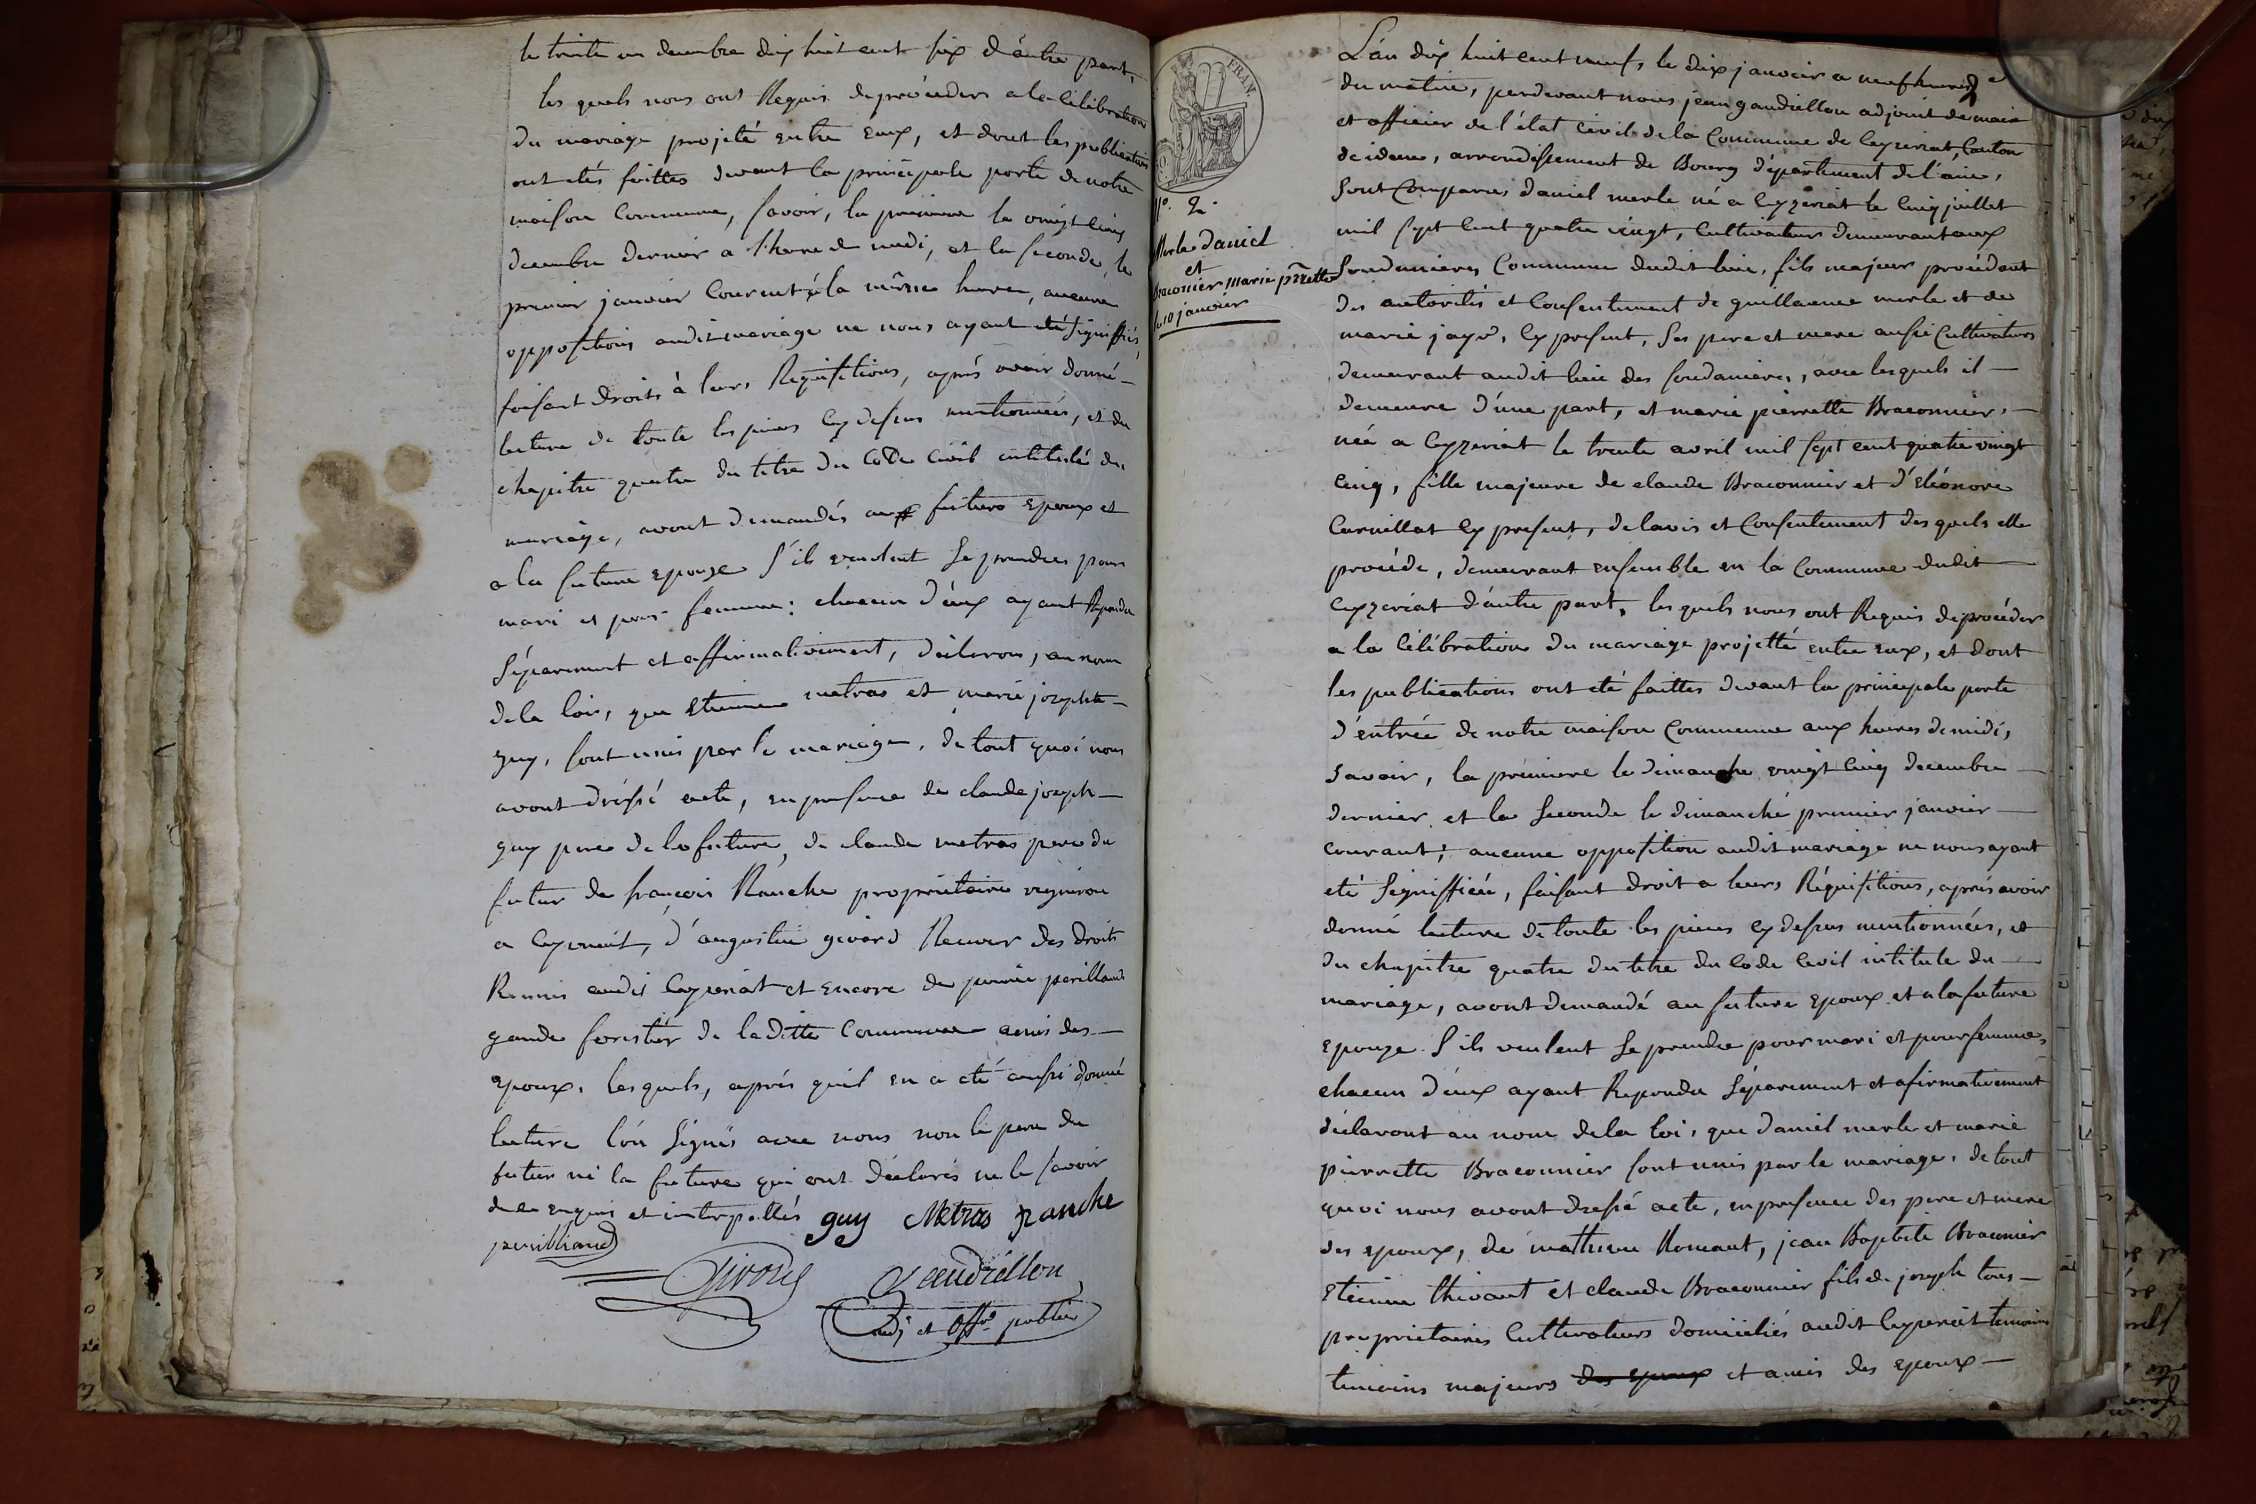 le trente un decembre dix huit cent six d'autre part,
les quels nous ont Requis de procéder a la Célébration
du mariage projeté entre Eux, et dont les publications
ont étés faittes devant la principale porte de notre
maison Commune, savoir, la premiere le vingt Cinq
decembre dernier a l'heure de midi, et la seconde, le
premier janvier Courant à la même heure, aucune
oppositions audit mariage ne nous ayant été signiffiés,
faisant droits à leurs Réquisitions, aprés avoir donné
lecture de toute les pieces Cy dessus mentionnées, et du
chapitre quatre du titre du Code Civil intitulé du
mariage, avont demandés au futurs Epoux et
a la future Epouze s'ils veulent se prendre pour
mari et pour femme: chacun d'eux ayant Repondu
séparement et affirmativement, déclarons, au nom
de la loi, que Etienne metras et marie josephte
guy, sont unis par le mariage, de tout quoi nous
avont dréssé acte, en presence de claude joseph
guy pere de la future, de claude metras pere du
futur de françois Ranche propriétaire vigniron
a Ceyzeriat, d'augustin givord Receveur des droits
Reunis audit Ceyzeriat et Encore de
garde forestiér de la ditte Commune amis des
Epoux, les quels, aprés quil en a été aussi donné
lecture l'on signés avec nous non le pere du
futur ni la future qui ont déclarés ne le savoir
de ce enquis et interpellés guy Metras Ranche
Givord Gaudillon
adj et Offr public
FRAN
No. 2.
Merle Daniel
et
Braconier Marie pierrette
du 10 janvier
L'an dix huit cent neuf, le dix janvier a neuf heures
du matin, pardevant nous jean gaudillon adjoint de maire
et officier de l'état Civil de la Commune de Ceyzeriat, Canton
de idem, arrondissement de Bourg département de l'ain,
sont Comparus daniel merle né a Ceyzeriat le Cinq juillet
mil sept Cent quatre vingt, Cultivateur demeurant aux
soudanieres Commune dudit lieu, fils majeur procédant
des autorités et Consentement de guillaume merle et de
marie jayr, Cy present, ses pere et mere aussi Cultivateurs
demeurant audit lieu des soudanieres, avec lesquels il
demeure d'une part, et marie pierrette Braconnier,
née a Ceyzeriat le trente avril mil sept cent quatre vingt
Cinq, fille majeure de claude Braconnier et d'Eléonore
Carnillat Cy present, de lavis et Consentement des quels elle
procéde, demeurant ensemble en la Commune dudit
Ceyzeriat d'autre part, les quels nous ont Requis de procéder
a la Célébration du mariage projetté entre Eux, et dont
les publications ont été faittes devant la principale porte
d'entrée de notre maison Commune aux heures de midi,
savoir, la premiere le dimanche vingt Cinq decembre
dernier et la seconde le dimanche premier janvier
courant; aucune opposition audit mariage ne nous ayant
eté signiffiée, faisant droit a leurs Réquisitions, aprés avoir
donné lecture de toute les pieces Cy dessus mentionnées, et
du chapitre quatre du titre du Code Civil intitule du
mariage, avont demandé au future Epoux et a la future
Epouze s'ils veulent se prendre pour mari et pour femme,
chacun d'eux ayant Repondu séparement et afirmativement
déclaront au nom de la loi, que daniel merle et marie
pierrette Braconnier sont unis par le mariage, de tout
quoi nous avont dressé acte, en presence des pere et mere
des Epoux, de mathieu Romant, jean Baptiste Braconier
Etienne thivant et claude Braconnier fils de joseph tous
propriétaires Cultivateurs domiciliés audit Ceyzeriat temoins
temoins majeurs des Epoux et amis des Epoux